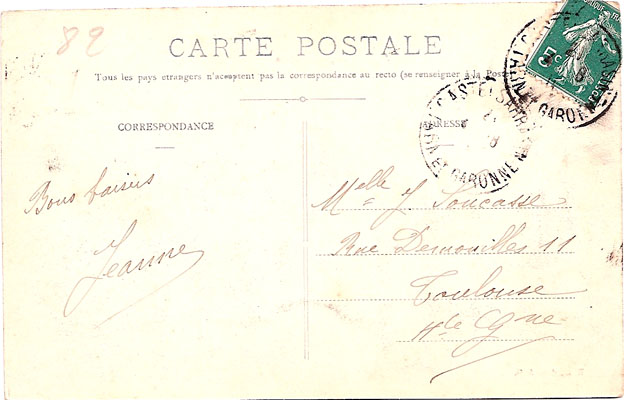 82
CARTE POSTALE
Tous les pays etrangers n'acceptent pas la correspondance au recto (se renseigner à la Poste
CORRESPONDANCE
ADRESSE
5c
CASTELSARRASIN
TARN ET GARONNE
Bons baisers
Jeanne
Melle J. Soucasse
Rue Demouilles 11
Toulouse
Hte Gne